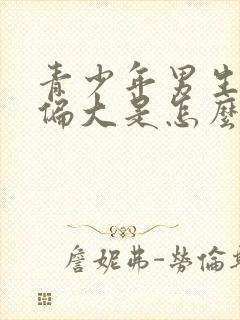 青少年男生
偏大是怎麼
詹妮弗-勞倫斯